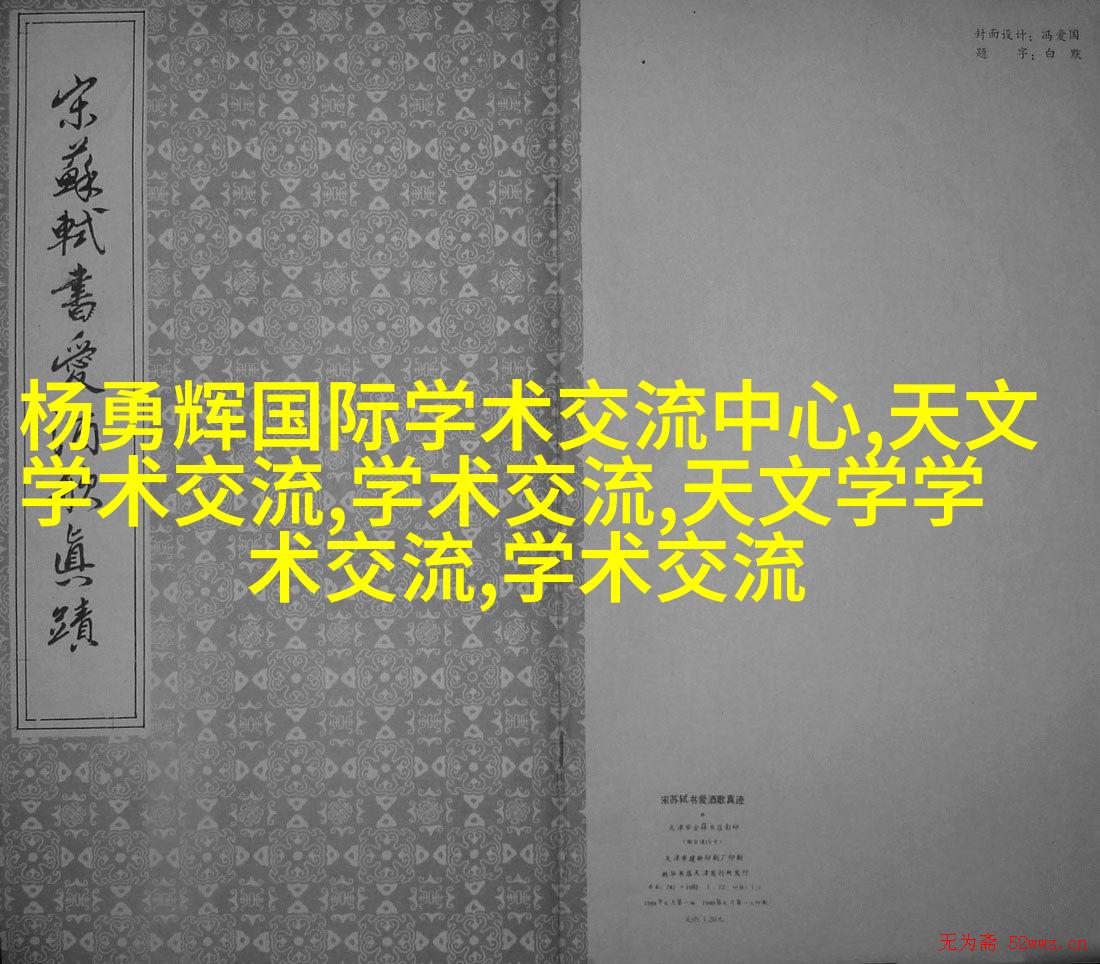 封面设计：冯爱国
题 字：白 默
宋蘇軾書愛酒歌真蹟
杨勇辉国际学术交流中心,天文
学术交流,学术交流,天文学学
术交流,学术交流
宋苏轼书爱酒歌真迹
天津市古籍书店影印
天津市建新印刷厂印刷
新华书店天津发行所发行
定价 1.20元
无为斋 52wwz.cn